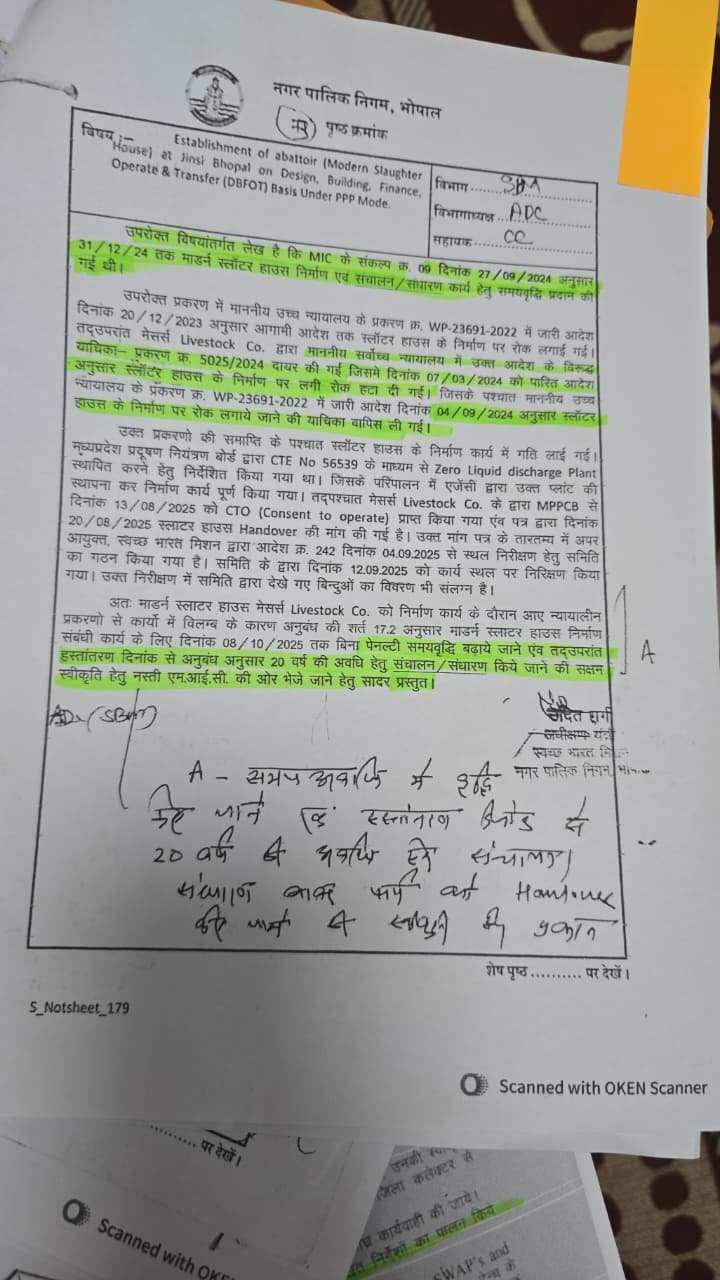 नगर पालिक निगम, भोपाल
पृष्ठ क्रमांक
विषय :– Establishment of abattoir (Modern Slaughter
House) at Jinsi Bhopal on Design, Building, Finance,
Operate & Transfer (DBFOT) Basis Under PPP Mode.
विभाग........SBM
विभागाध्यक्ष...ADC
सहायक........CC
उपरोक्त विषयांतर्गत लेख है कि MIC के संकल्प क्र. 09 दिनांक 27/09/2024 अनुसार
31/12/24 तक मार्डन स्लॉटर हाउस निर्माण एवं संचालन/संधारण कार्य हेतु समयवृद्धि प्रदान की
गई थी।
उपरोक्त प्रकरण में माननीय उच्च न्यायालय के प्रकरण क्र. WP-23691-2022 में जारी आदेश
दिनांक 20/12/2023 अनुसार आगामी आदेश तक स्लॉटर हाउस के निर्माण पर रोक लगाई गई।
तद्उपरांत मेसर्स Livestock Co. द्वारा माननीय सर्वोच्च न्यायालय में उक्त आदेश के विरूद्ध
याचिका– प्रकरण क्र. 5025/2024 दायर की गई जिसमे दिनांक 07/03/2024 को पारित आदेश
अनुसार स्लॉटर हाउस के निर्माण पर लगी रोक हटा दी गई। जिसके पश्चात माननीय उच्च
न्यायालय के प्रकरण क्र. WP-23691-2022 में जारी आदेश दिनांक 04/09/2024 अनुसार स्लॉटर
हाउस के निर्माण पर रोक लगाये जाने की याचिका वापिस ली गई।
उक्त प्रकरणो की समाप्ति के पश्चात स्लॉटर हाउस के निर्माण कार्य में गति लाई गई।
मध्यप्रदेश प्रदूषण नियंत्रण बोर्ड द्वारा CTE No 56539 के माध्यम से Zero Liquid discharge Plant
स्थापित करने हेतु निर्देशित किया गया था। जिसके परिपालन में एजेंसी द्वारा उक्त प्लांट की
स्थापना कर निर्माण कार्य पूर्ण किया गया। तद्पश्चात मेसर्स Livestock Co. के द्वारा MPPCB से
दिनांक 13/08/2025 को CTO (Consent to operate) प्राप्त किया गया एवं पत्र द्वारा दिनांक
20/08/2025 स्लाटर हाउस Handover की मांग की गई है। उक्त मांग पत्र के तारतम्य में अपर
आयुक्त, स्वच्छ भारत मिशन द्वारा आदेश क्र. 242 दिनांक 04.09.2025 से स्थल निरीक्षण हेतु समिति
का गठन किया गया है। समिति के द्वारा दिनांक 12.09.2025 को कार्य स्थल पर निरिक्षण किया
गया। उक्त निरीक्षण में समिति द्वारा देखे गए बिन्दुओं का विवरण भी संलग्न है।
अतः मार्डन स्लाटर हाउस मेसर्स Livestock Co. को निर्माण कार्य के दौरान आए न्यायालीन
प्रकरणो से कार्यो में विलम्ब के कारण अनुबंध की शर्त 17.2 अनुसार मार्डन स्लाटर हाउस निर्माण
संबंधी कार्य के लिए दिनांक 08/10/2025 तक बिना पेनल्टी समयवृद्धि बढ़ाये जाने एंव तद्उपरांत
हस्तांतरण दिनांक से अनुबंध अनुसार 20 वर्ष की अवधि हेतु संचालन/संधारण किये जाने की सक्षम
स्वीकृति हेतु नस्ती एम.आई.सी. की ओर भेजे जाने हेतु सादर प्रस्तुत।
A
(SBM)
उदित गर्ग
अधीक्षण यंत्री
स्वच्छ भारत मिशन
नगर पालिक निगम,
A – समय अवधि में वृद्धि
किए जाने एवं हस्तांतरण से
20 वर्ष की अवधि हेतु संचालन/
संधारण Handover
किए जाने की स्वीकृति
शेष पृष्ठ .......... पर देखें।
S_Notsheet_179
Scanned with OKEN Scanner
.......... पर देखें।
Scanned with OKEN
उनकी
जिला कलेक्टर से
कार्यवाही की जाये।
निर्देशों का पालन किये
SWAP's and